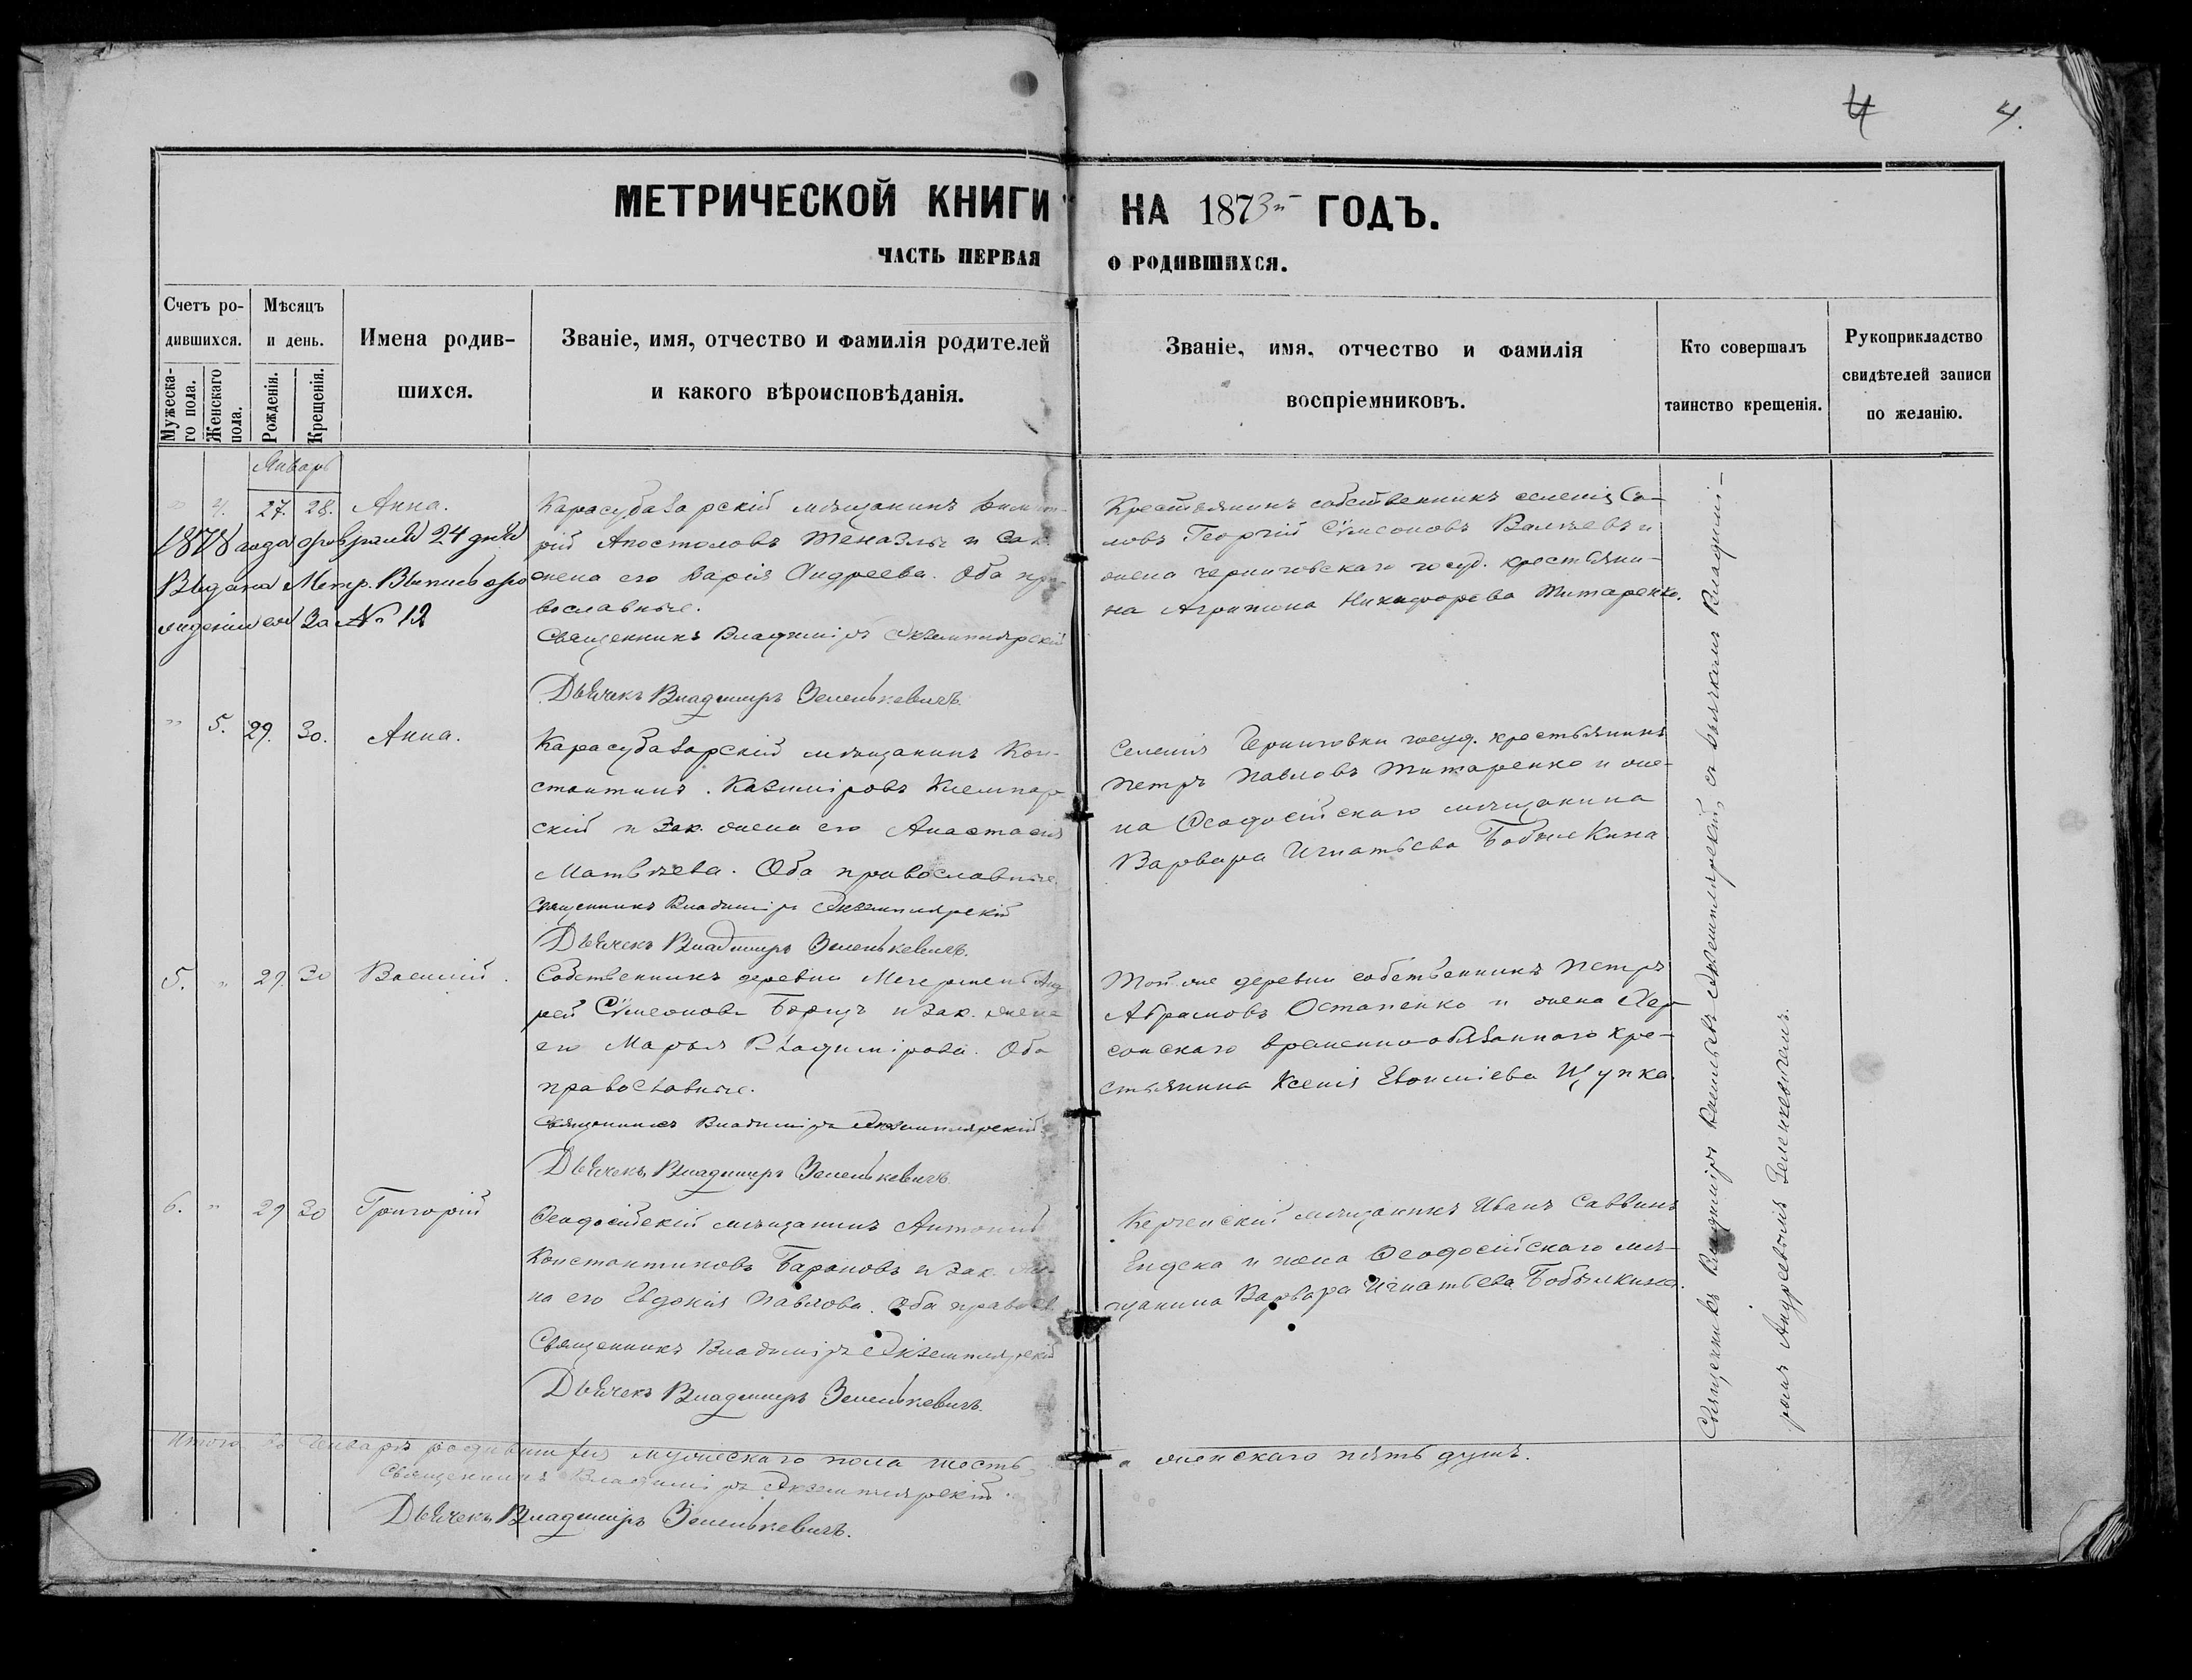 4 4.
МЕТРИЧЕСКОЙ КНИГИ НА 1873й ГОДЪ.
ЧАСТЬ ПЕРВАЯ О РОДИВШИХСЯ.
Счетъ ро-
дившихся.
Мужеска-
го пола.
Женскаго
пола.
Мѣсяцъ
и день.
Рожденія.
Крещенія.
Имена родив-
шихся.
Званіе, имя, отчество и фамилія родителей
и какого вѣроисповѣданія.
Званіе, имя, отчество и фамилія
воспріемниковъ.
Кто совершалъ
таинство крещенія.
Рукоприкладство
свидѣтелей записи
по желанію.
Январь
" 4. 27. 28. Анна.
1878 года февраля 24 дня
Выдана Метр. Выпись о ро
ждении за № 12
Карасубазарскій мѣщанинъ Димит-
рій Апостоловъ и Зак.
жена его Дарія Андреева. Оба пра-
вославные.
Священникъ Владиміръ Экземплярскій
Дьячекъ Владимиръ Зеленькевичъ.
Крестьянинъ собственникъ селенія Са-
ловъ Георгій Сѵмеоновъ Вальчевъ и
жена черниговскаго госуд. крестьяни-
на Агрипина Никифорова Титаренко.
" 5. 29. 30. Анна.
Карасубазарскій мѣщанинъ Кон-
стантинъ Казиміровъ
скій и Зак. жена его Анастасія
Матвѣева. Оба православные.
Священникъ Владиміръ Экземплярскій
Дьячекъ Владимиръ Зеленькевичъ.
Селенія Черниговки госуд. крестьянинъ
Петръ Павловъ Титаренко и же-
на Ѳеодосійскаго мѣщанина
Варвара Игнатьева Бобылкина
5. " 29. 30 Василій.
Собственникъ деревни Анд
рей Сѵмеоновъ Борщъ и Зак. жена
его Марья Владимірова. Оба
православные.
Священникъ Владиміръ Экземплярскій
Дьячекъ Владимиръ Зеленькевичъ.
Той же деревни собственникъ Петръ
Абрамовъ Остапенко и жена Хер-
сонскаго временно-обязаннаго кре-
стьянина Ксенія Щупка.
6. " 29 30 Григорій
Ѳеодосійскій мѣщанинъ Антоній
Константиновъ Барановъ и Зак. же-
на его Евдокія Павлова. Оба правосл.
Священникъ Владиміръ Экземплярскій
Дьячекъ Владимиръ Зеленькевичъ.
Керченскій мѣщанинъ Иванъ Саввинъ
и жена Ѳеодосійскаго мѣ-
щанина Варвара Игнатьева Бобылкина.
Священникъ Владиміръ Васильевъ Экземплярскій, съ дьячкомъ Владимі-
ромъ Андреевымъ Зеленкевичемъ.
Итого въ Январѣ родившихся мужескаго пола шесть, а женскаго пять душъ.
Священникъ Владиміръ Экземплярскій.
Дьячекъ Владимиръ Зеленькевичъ.